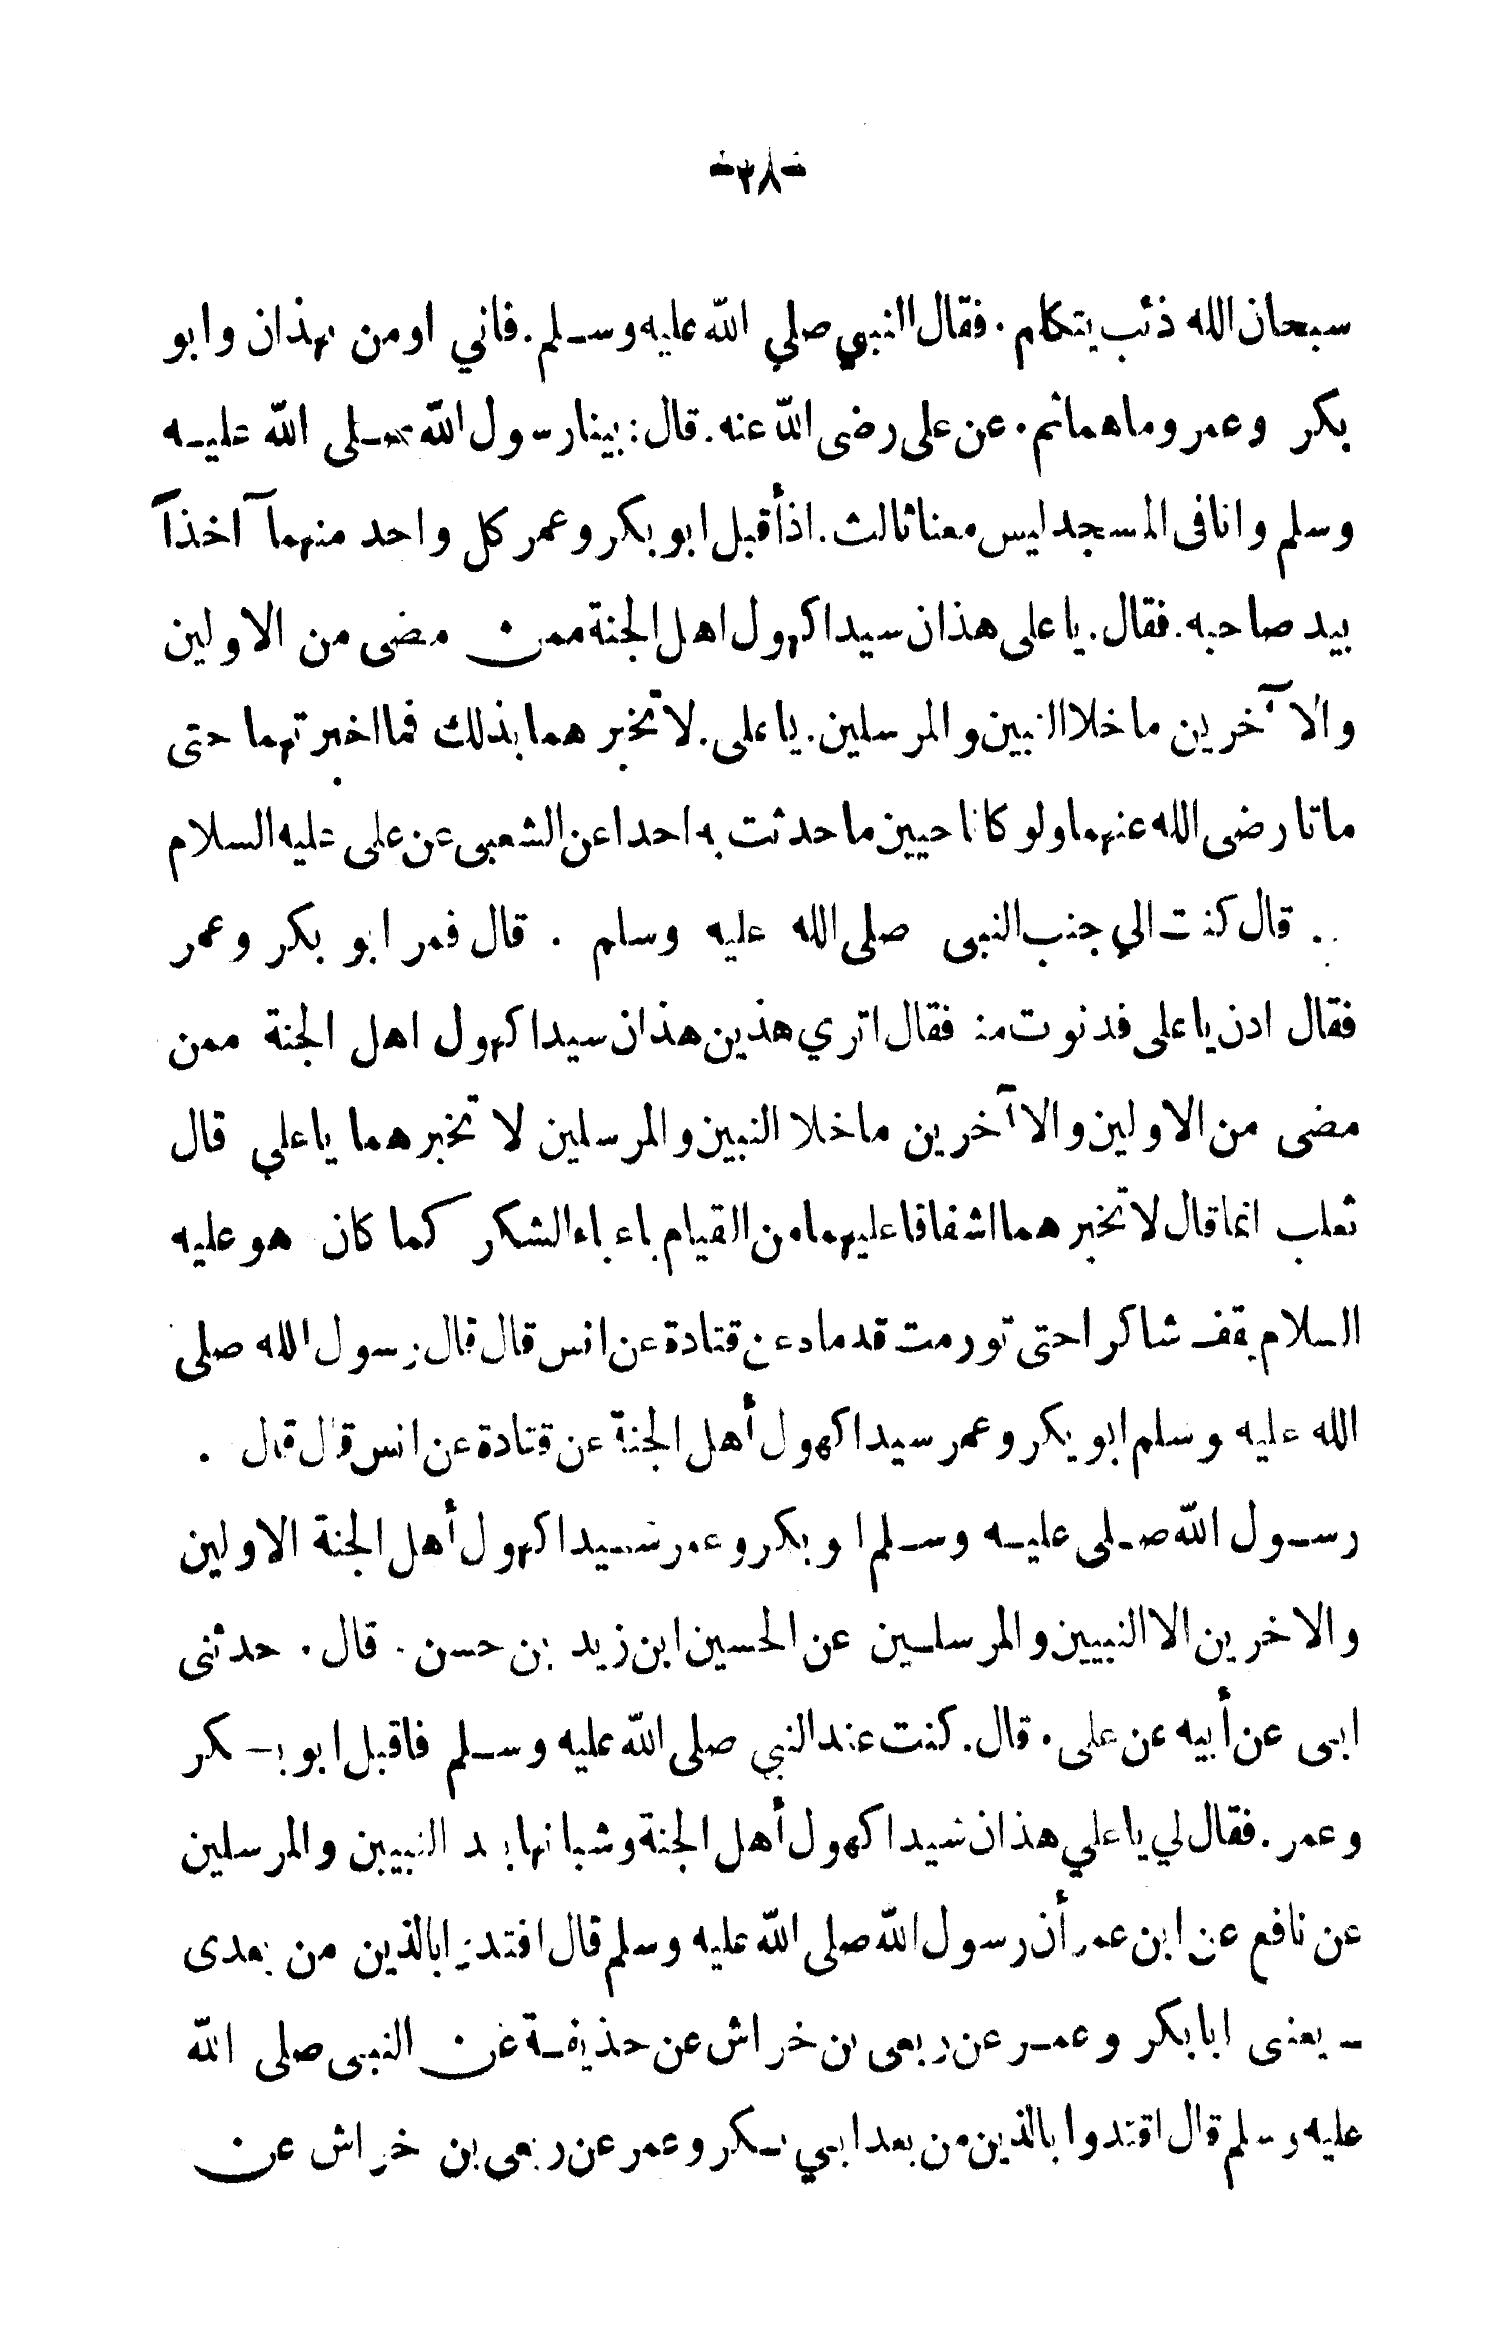 -٣٨-
سبحان الله ذئب يتكلم . فقال النبي صلي الله عليه وسلم . فاني اومن بهذان وابو
بكر وعمر وماهماثم . عن على رضى الله عنه . قال : بينا رسول الله صلى الله عليه
وسلم وانا فى المسجد ليس معنا ثالث . اذ أقبل ابو بكر وعمر كل واحد منهما آخذاً
بيد صاحبه . فقال . يا على هذان سيدا كهول اهل الجنة ممن مضى من الاولين
والاآخرين ما خلا النبين والمرسلين . يا على . لا تخبر هما بذلك فما اخبرتهما حتى
ماتا رضى الله عنهما ولو كانا حيين ما حدثت به احدا عن الشعبى عن على عليه السلام
. . قال كنت الي جنب النبى صلى الله عليه وسلم . قال فمر ابو بكر وعمر
فقال ادن يا على فدنوت منه فقال اتري هذين هذان سيدا كهول اهل الجنة ممن
مضى من الاولين والاآخرين ما خلا النبين والمرسلين لا تخبر هما يا علي قال
ثعلب انما قال لا تخبر هما اشفاقا عليهما من القيام باعباء الشكر كما كان هو عليه
السلام يقف شاكرا حتى تورمت قدماه عن قتادة عن انس قال قال رسول الله صلى
الله عليه وسلم ابو بكر وعمر سيدا كهول أهل الجنة عن قتادة عن انس قال قال .
رسول الله صلى عليه وسلم ابو بكر وعمر سيدا كهول أهل الجنة الاولين
والاخرين الا النبيين والمرسلين عن الحسين ابن زيد بن حسن . قال . حدثنى
ابى عن أبيه عن على . قال . كنت عند النبي صلى الله عليه وسلم فاقبل ابو بكر
وعمر . فقال لي يا علي هذان سيدا كهول أهل الجنة وشبانها بعد النبيين والمرسلين
عن نافع عن ابن عمر أن رسول الله صلى الله عليه وسلم قال اقتدوا بالذين من بعدى
- يعنى ابا بكر وعمر عن ربعى بن خراش عن حذيفة عن النبى صلى الله
عليه وسلم قال اقتدوا بالذين من بعد ابي بكر وعمر عن ربعى بن خراش عن